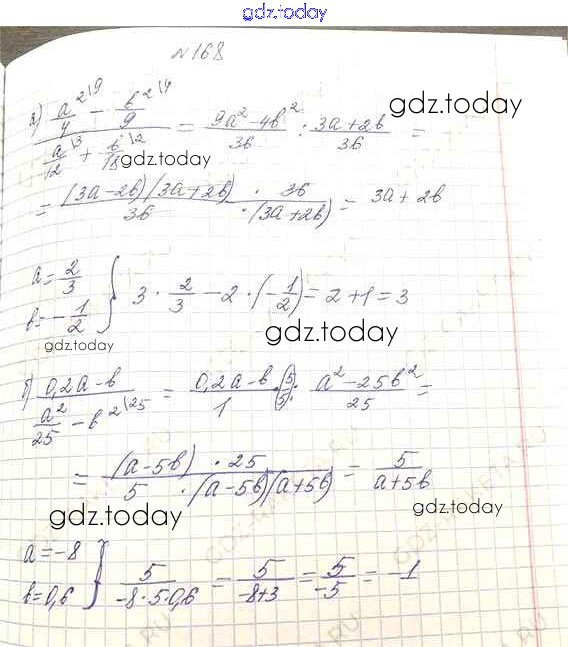 gdz.today
№168
а) (a²\9/4 − b²\4/9)/(a\3/12 + b\2/18) = (9a² − 4b²)/36 : (3a + 2b)/36 =
gdz.today
gdz.today
= ((3a − 2b)(3a + 2b) · 36)/(36 · (3a + 2b)) = 3a + 2b
a = 2/3
b = −1/2 } 3 · 2/3 − 2 · (−1/2) = 2 + 1 = 3
gdz.today
gdz.today
б) (0,2a − b)/(a²/25 − b²\25) = (0,2a − b)/1 (5/5) : (a² − 25b²)/25 =
= ((a − 5b) · 25)/(5 · (a − 5b)(a + 5b)) = 5/(a + 5b)
gdz.today
gdz.today
a = −8
b = 0,6 } 5/(−8 · 5 · 0,6) = 5/(−8 + 3) = 5/−5 = −1